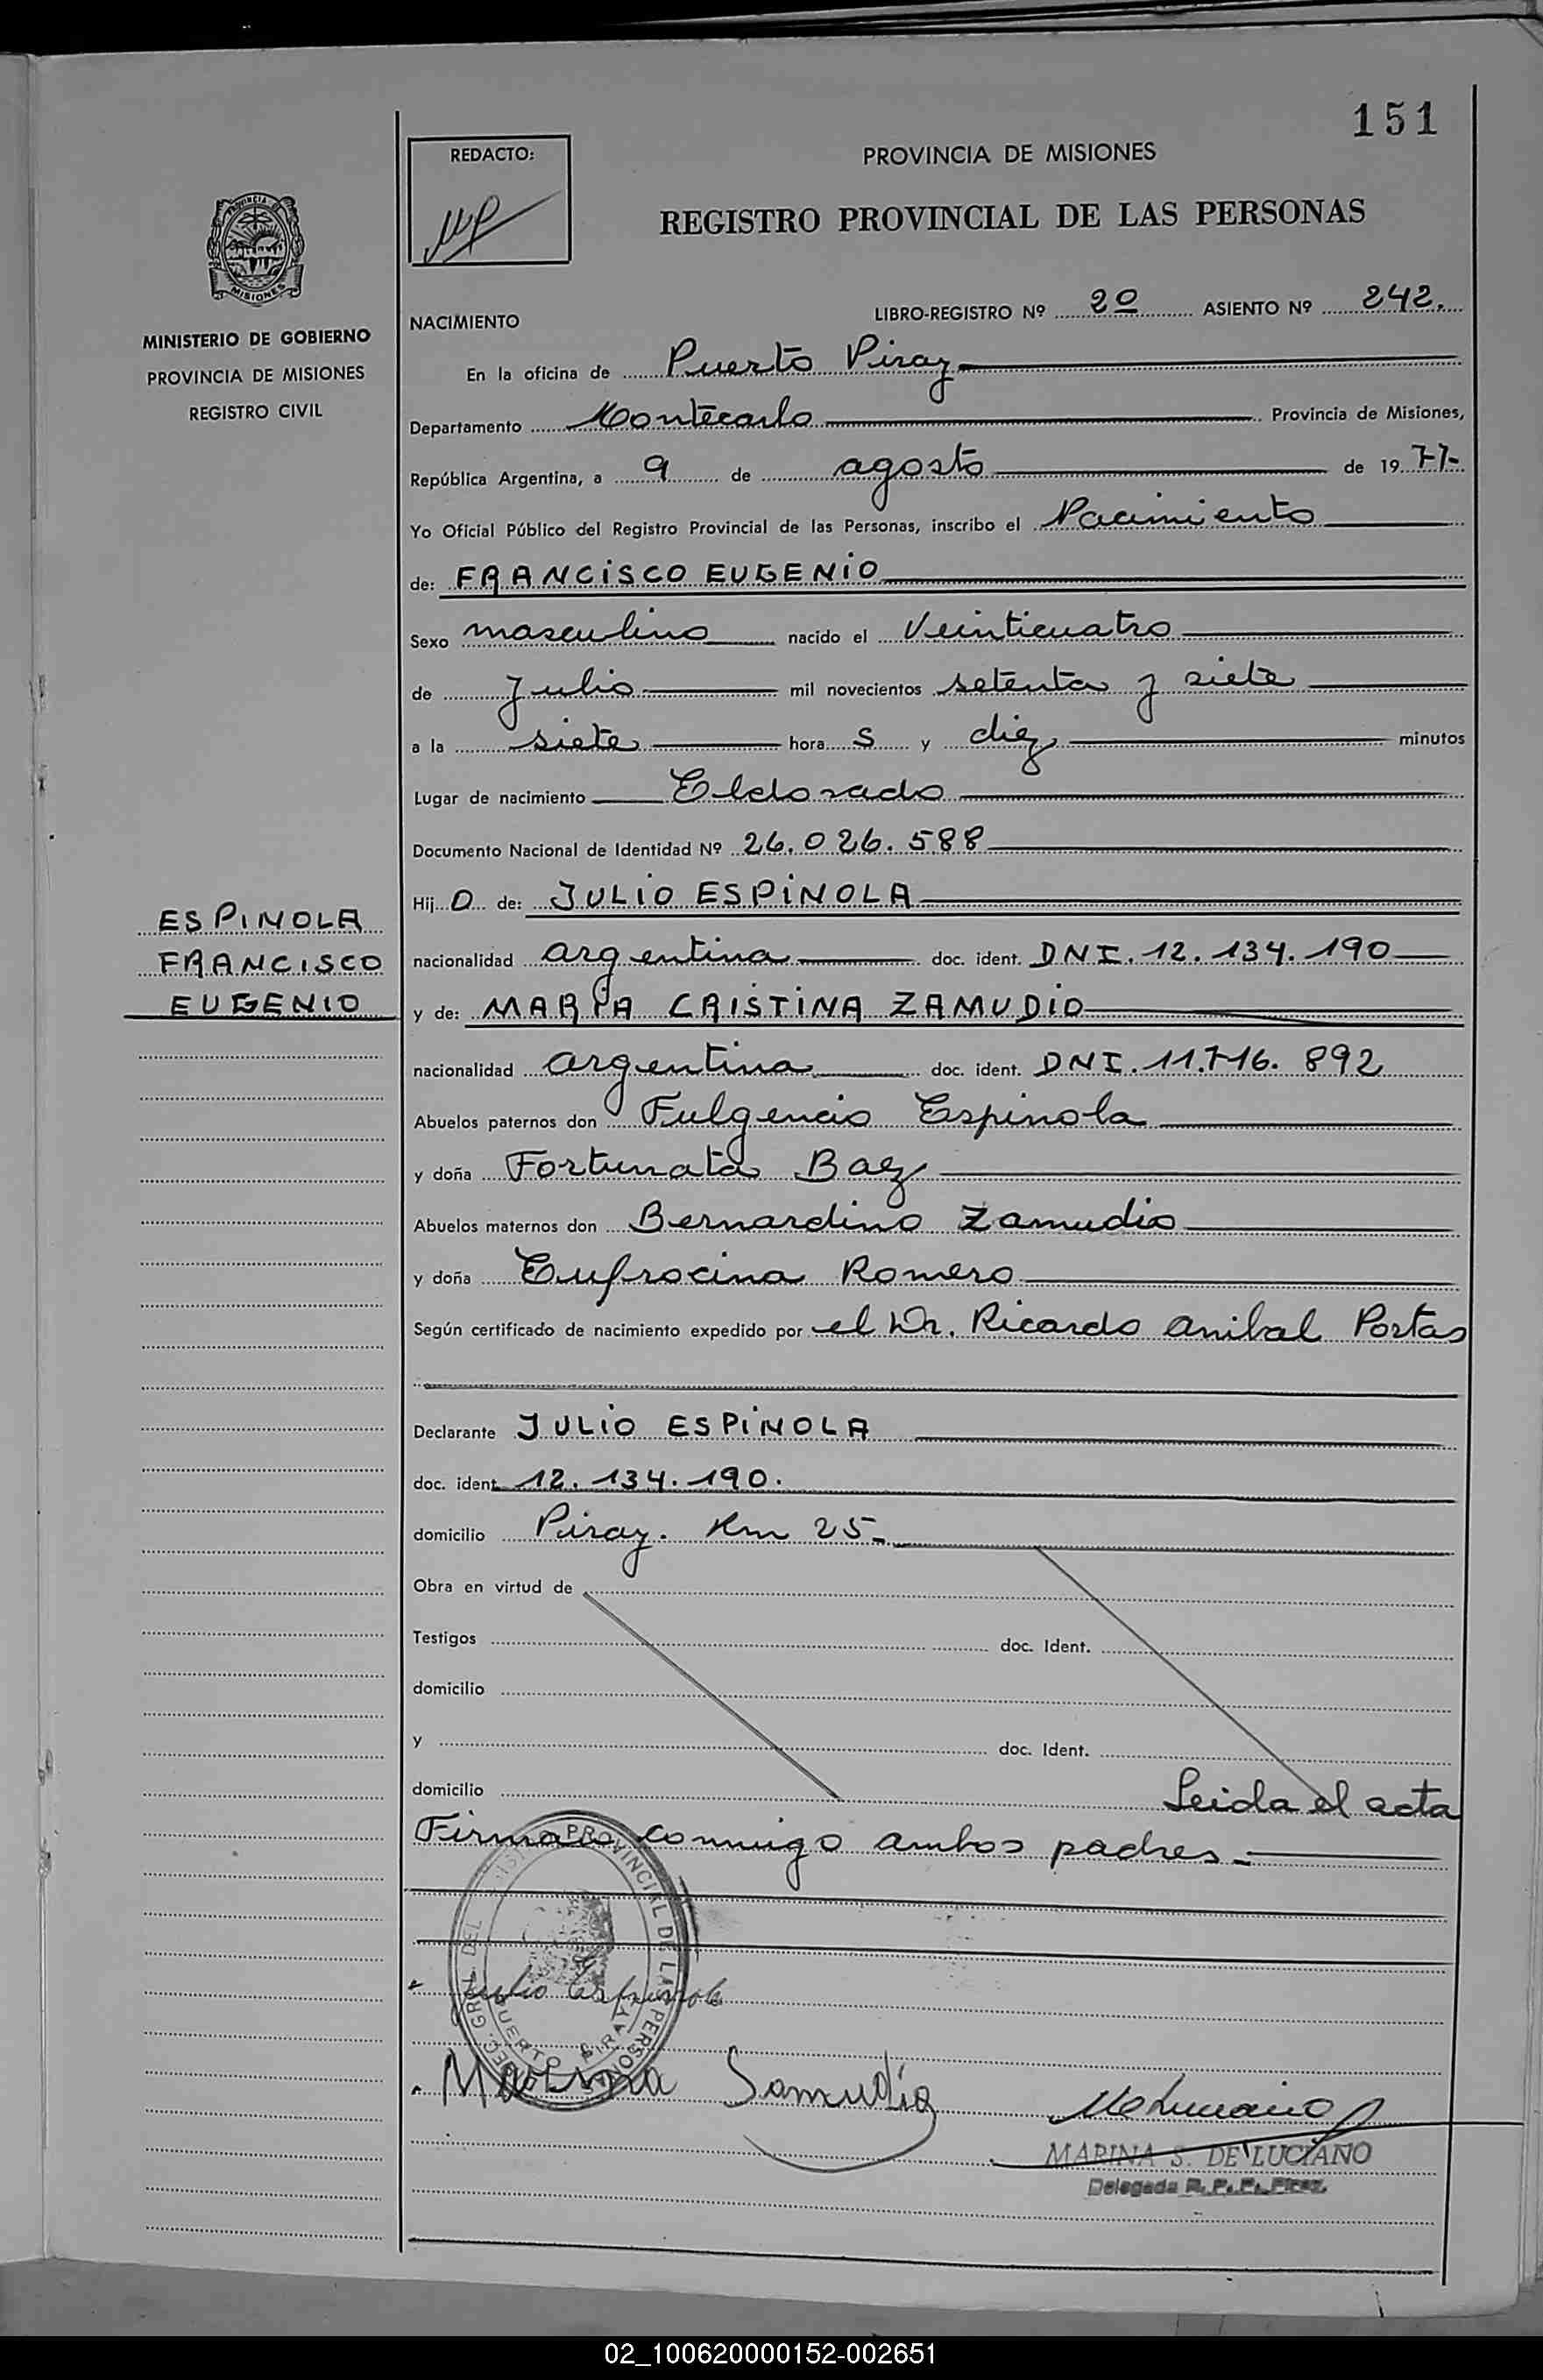 151
REDACTO:
PROVINCIA DE MISIONES
REGISTRO PROVINCIAL DE LAS PERSONAS
PROVINCIA DE
MISIONES
MINISTERIO DE GOBIERNO
PROVINCIA DE MISIONES
REGISTRO CIVIL
NACIMIENTO
LIBRO-REGISTRO Nº 20 ASIENTO Nº 242.
En la oficina de Puerto Piray
Departamento Montecarlo Provincia de Misiones,
República Argentina, a 9 de agosto de 1977-
Yo Oficial Público del Registro Provincial de las Personas, inscribo el Nacimiento
de: FRANCISCO EUGENIO
Sexo masculino nacido el Veinticuatro
de Julio mil novecientos setenta y siete
a la siete hora s y diez minutos
Lugar de nacimiento Eldorado
Documento Nacional de Identidad Nº 26.026.588
Hij o de: JULIO ESPINOLA
ESPINOLA
FRANCISCO
EUGENIO
nacionalidad argentina doc. ident. DNI. 12.134.190
y de: MARIA CRISTINA ZAMUDIO
nacionalidad argentina doc. ident. DNI. 11.716.892
Abuelos paternos don Fulgencio Espinola
y doña Fortunata Baez
Abuelos maternos don Bernardino Zamudio
y doña Eufrocina Romero
Según certificado de nacimiento expedido por el Dr. Ricardo Anibal Portas
Declarante JULIO ESPINOLA
doc. ident. 12.134.190.
domicilio Piray. Km 25-
Obra en virtud de
Testigos doc. Ident.
domicilio
y doc. Ident.
domicilio Leida el acta
Firman conmigo ambos padres.-
PROVINCIAL DE LAS PERSONAS
PUERTO PIRAY
Julio Espinola
Samudio
MARINA S. DE LUCIANO
Delegada R. P. P. Piray
02_100620000152-002651